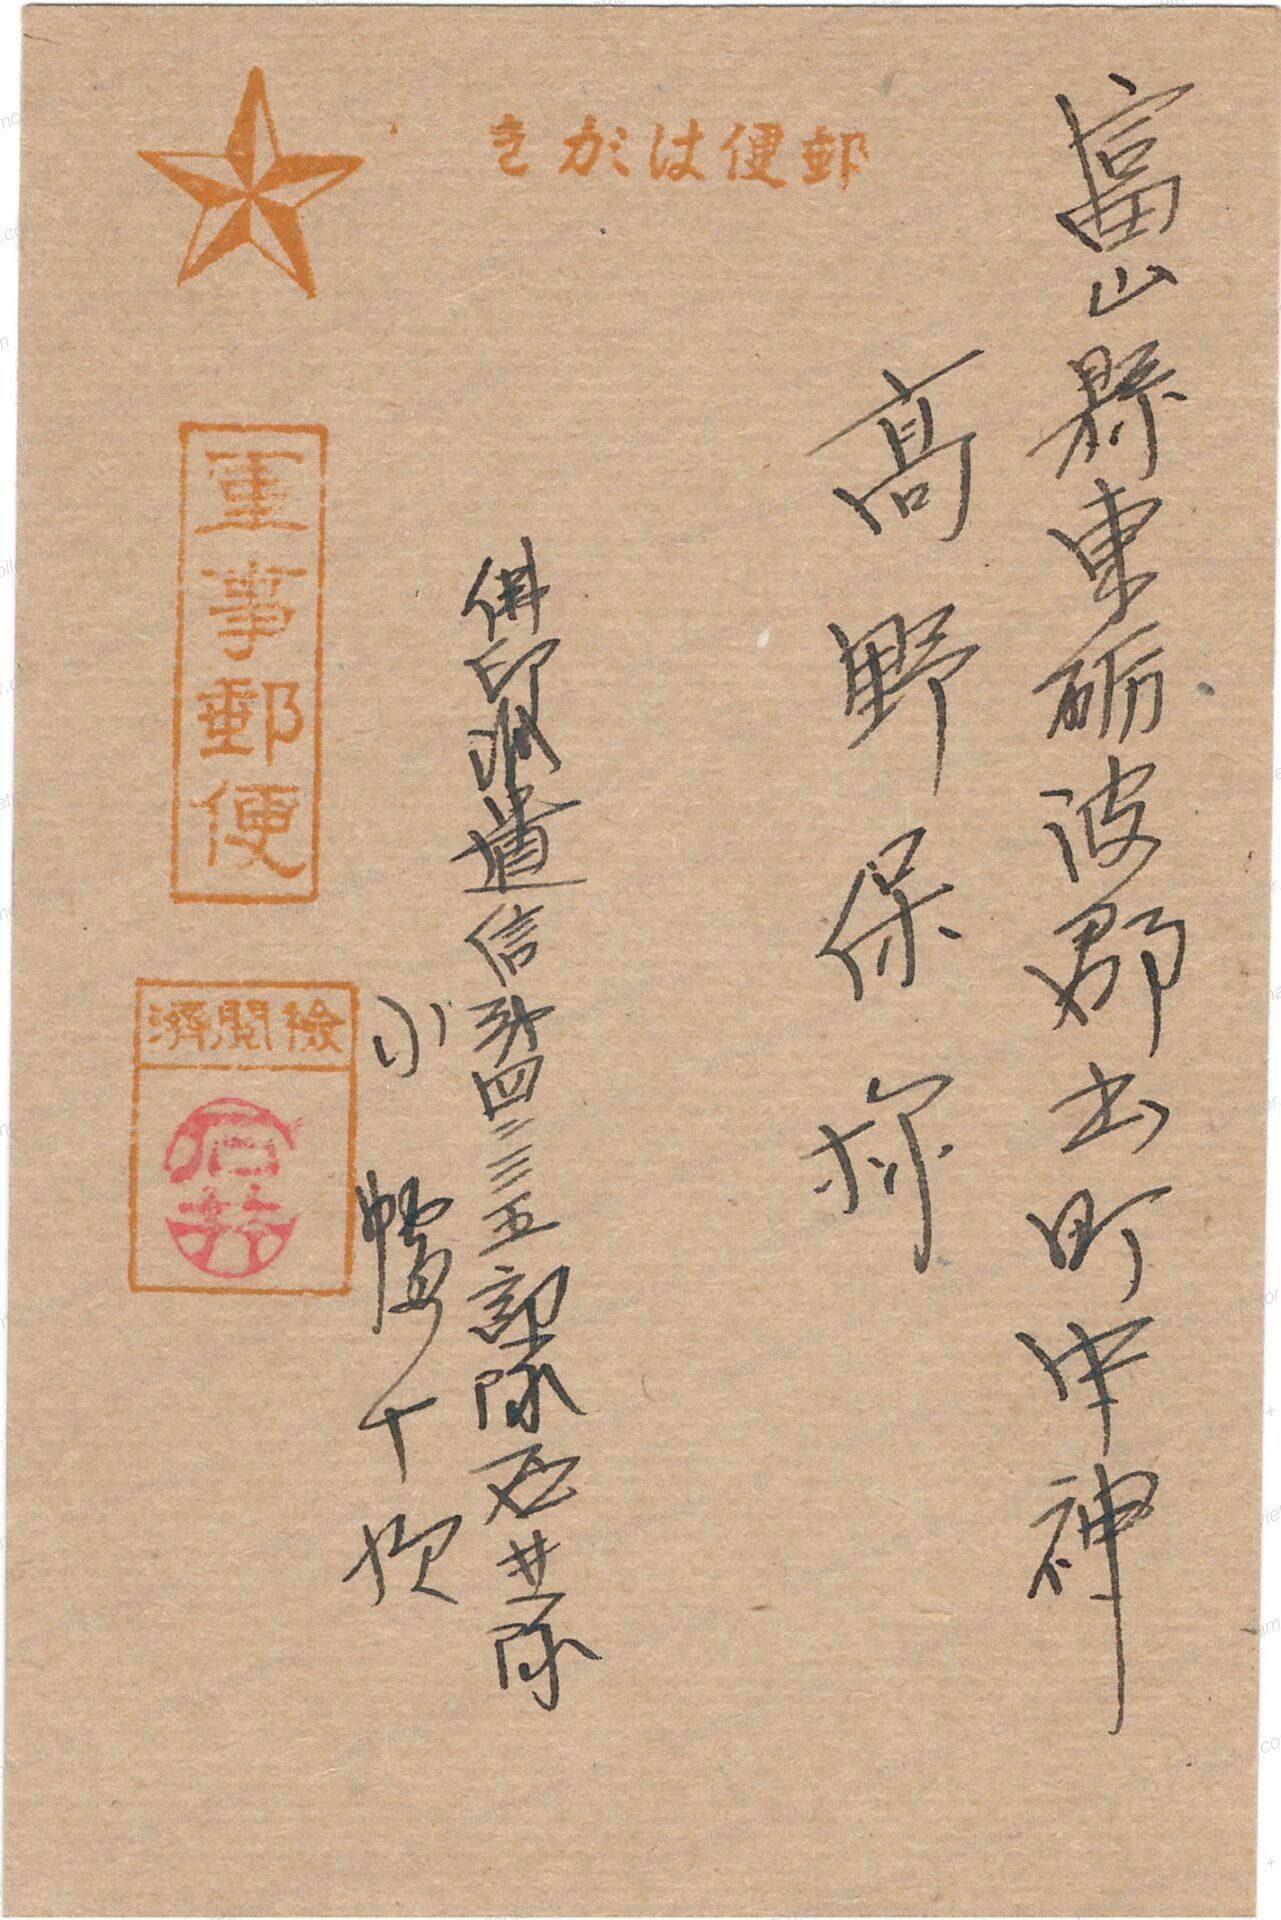 郵便はがき
富山縣東砺波郡出町中神
高野保様
佛印派遣信第四二三五部隊石井隊
小 十次
軍事郵便
檢閲濟
石井